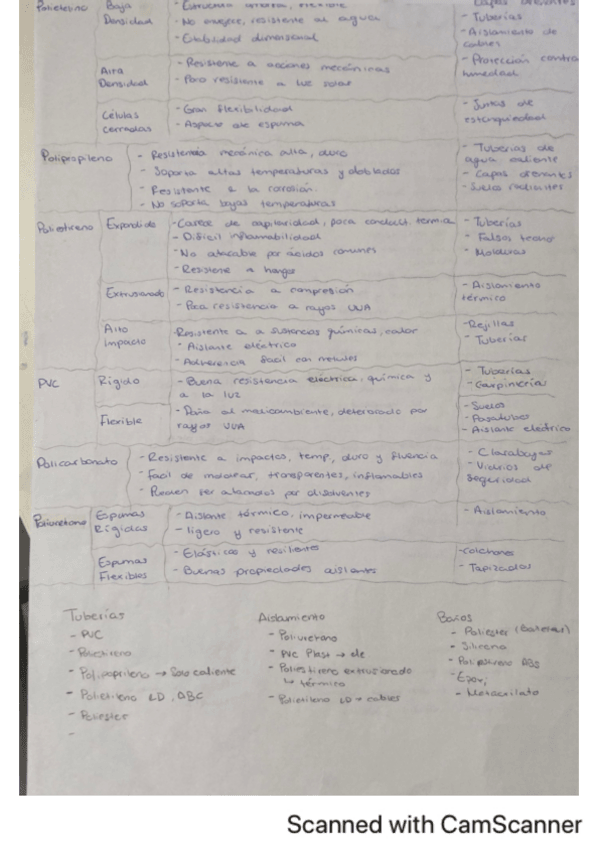 Polietileno Baja Densidad
- No envejece, resistente al agua
- Estabilidad dimensional
Capas drenantes
- Tuberías
- Aislamiento de cables
- Protección contra humedad
Alta Densidad
- Resistente a acciones mecánicas
- Poco resistente a luz solar
Células cerradas
- Gran flexibilidad
- Aspecto de espuma
- Juntas de estanquiedad
Polipropileno
- Resistencia mecánica alta, duro
- Soporta altas temperaturas y doblados
- Resistente a la corrosión.
- No soporta bajas temperaturas
- Tuberías de agua caliente
- Capas drenantes
- Suelos radiantes
Poliestireno Expandido
- Carece de capilaridad, poca conduct. termia
- Difícil inflamabilidad
- No atacable por ácidos comunes
- Resistente a hongos
- Tuberías
- Falsos techo
- Molduras
Extrusionado
- Resistencia a compresión
- Poca resistencia a rayos UVA
- Aislamiento térmico
Alto Impacto
- Resistente a a sustancias químicas, calor
- Aislante eléctrico
- Adherencia facil con metales
- Rejillas
- Tuberías
PVC Rígido
- Buena resistencia eléctrica, química y a la luz
- Tuberías
- Carpinterías
Flexible
- Daña al medioambiente, deteriorado por rayos UVA
- Suelos
- Pasatubos
- Aislante eléctrico
Policarbonato
- Resistente a impactos, temp, duro y fluencia
- Facil de moldear, transparentes, inflamables
- Pueden ser atacados por disolventes
- Claraboyas
- Vidrios de seguridad
Poliuretano Espumas Rígidas
- Aislante térmico, impermeable
- ligero y resistente
- Aislamiento
Espumas Flexibles
- Elásticas y resiliente
- Buenas propiedades aislantes
- Colchones
- Tapizados
Tuberías
- PVC
- Poliestireno
- Polipropileno → Solo caliente
- Polietileno LD, ABC
- Poliester
-
Aislamiento
- Poliuretano
- PVC Plast → ele
- Poliestireno extrusionado
↳ térmico
- Polietileno LD → cables
Baños
- Poliester (Bañeras)
- Silicona
- ABS
- Epoxi
- Metacrilato
Scanned with CamScanner